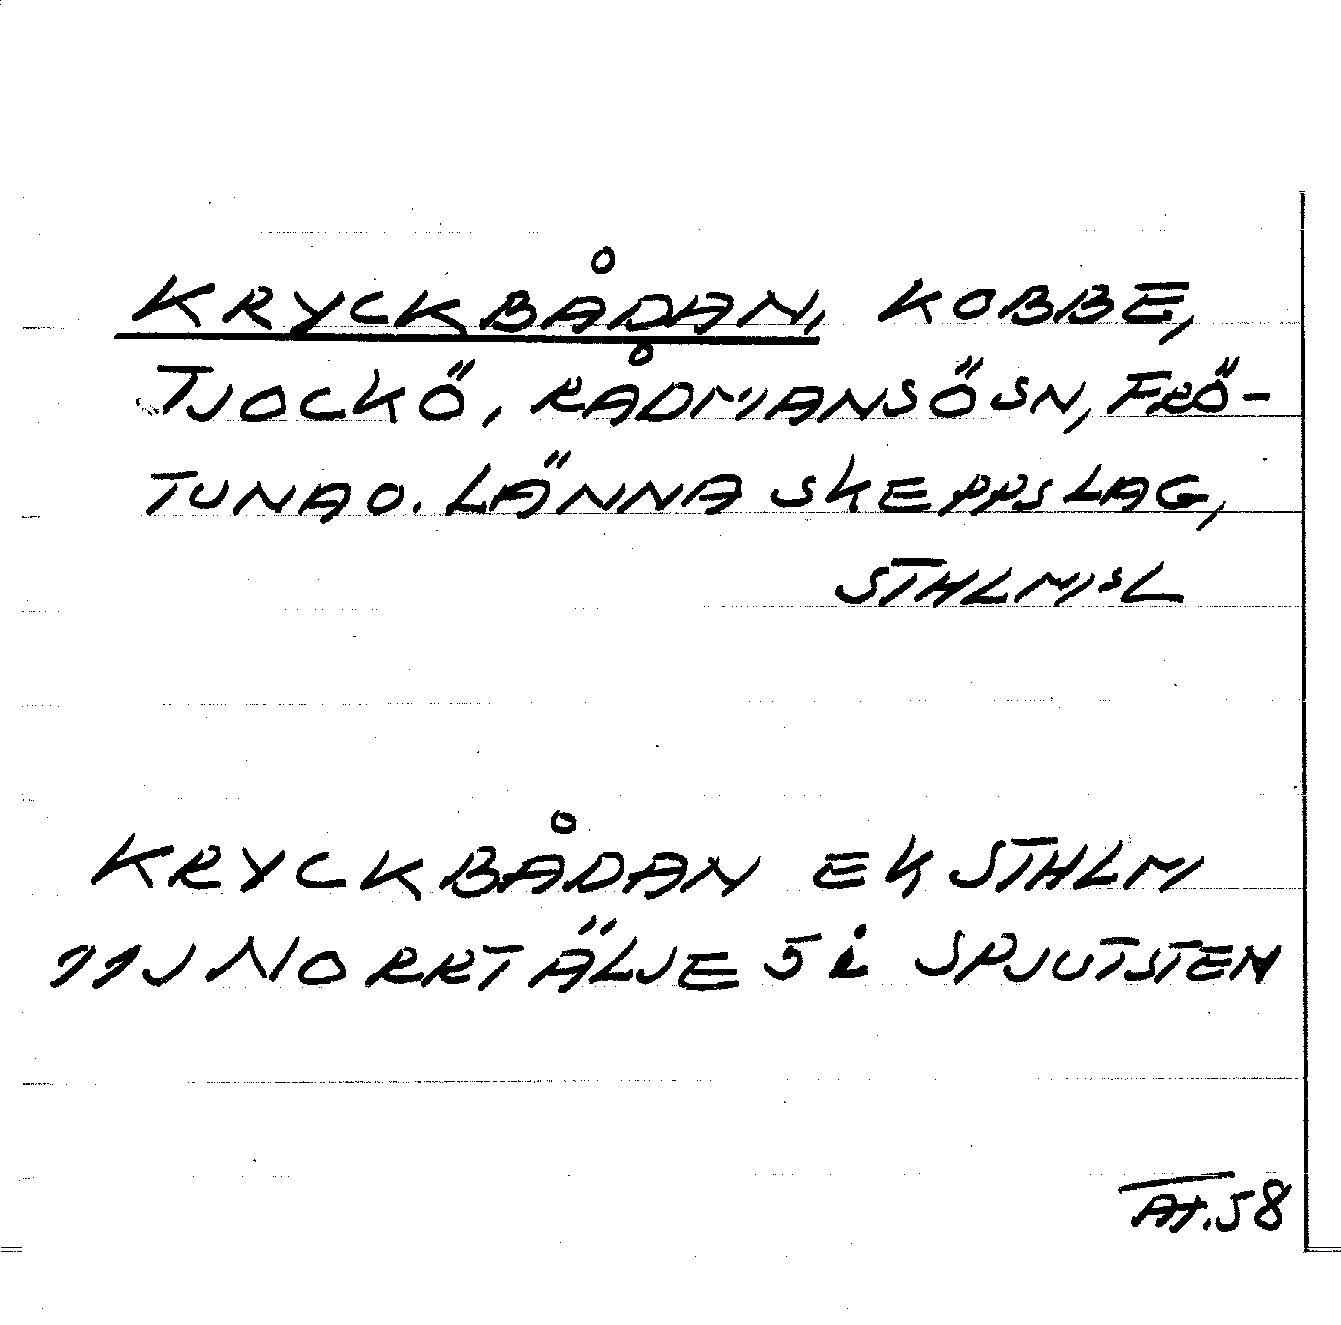 KRYCKBÅDAN, KOBBE,
TJOCKÖ, RÅDMANSÖSN, FRÖ-
TUNA O. LÄNNA SKEPPSLAG,
STHLMSL
KRYCKBÅDAN EK STHLM
11J NORRTÄLJE 5 i SPJUTSTEN
58